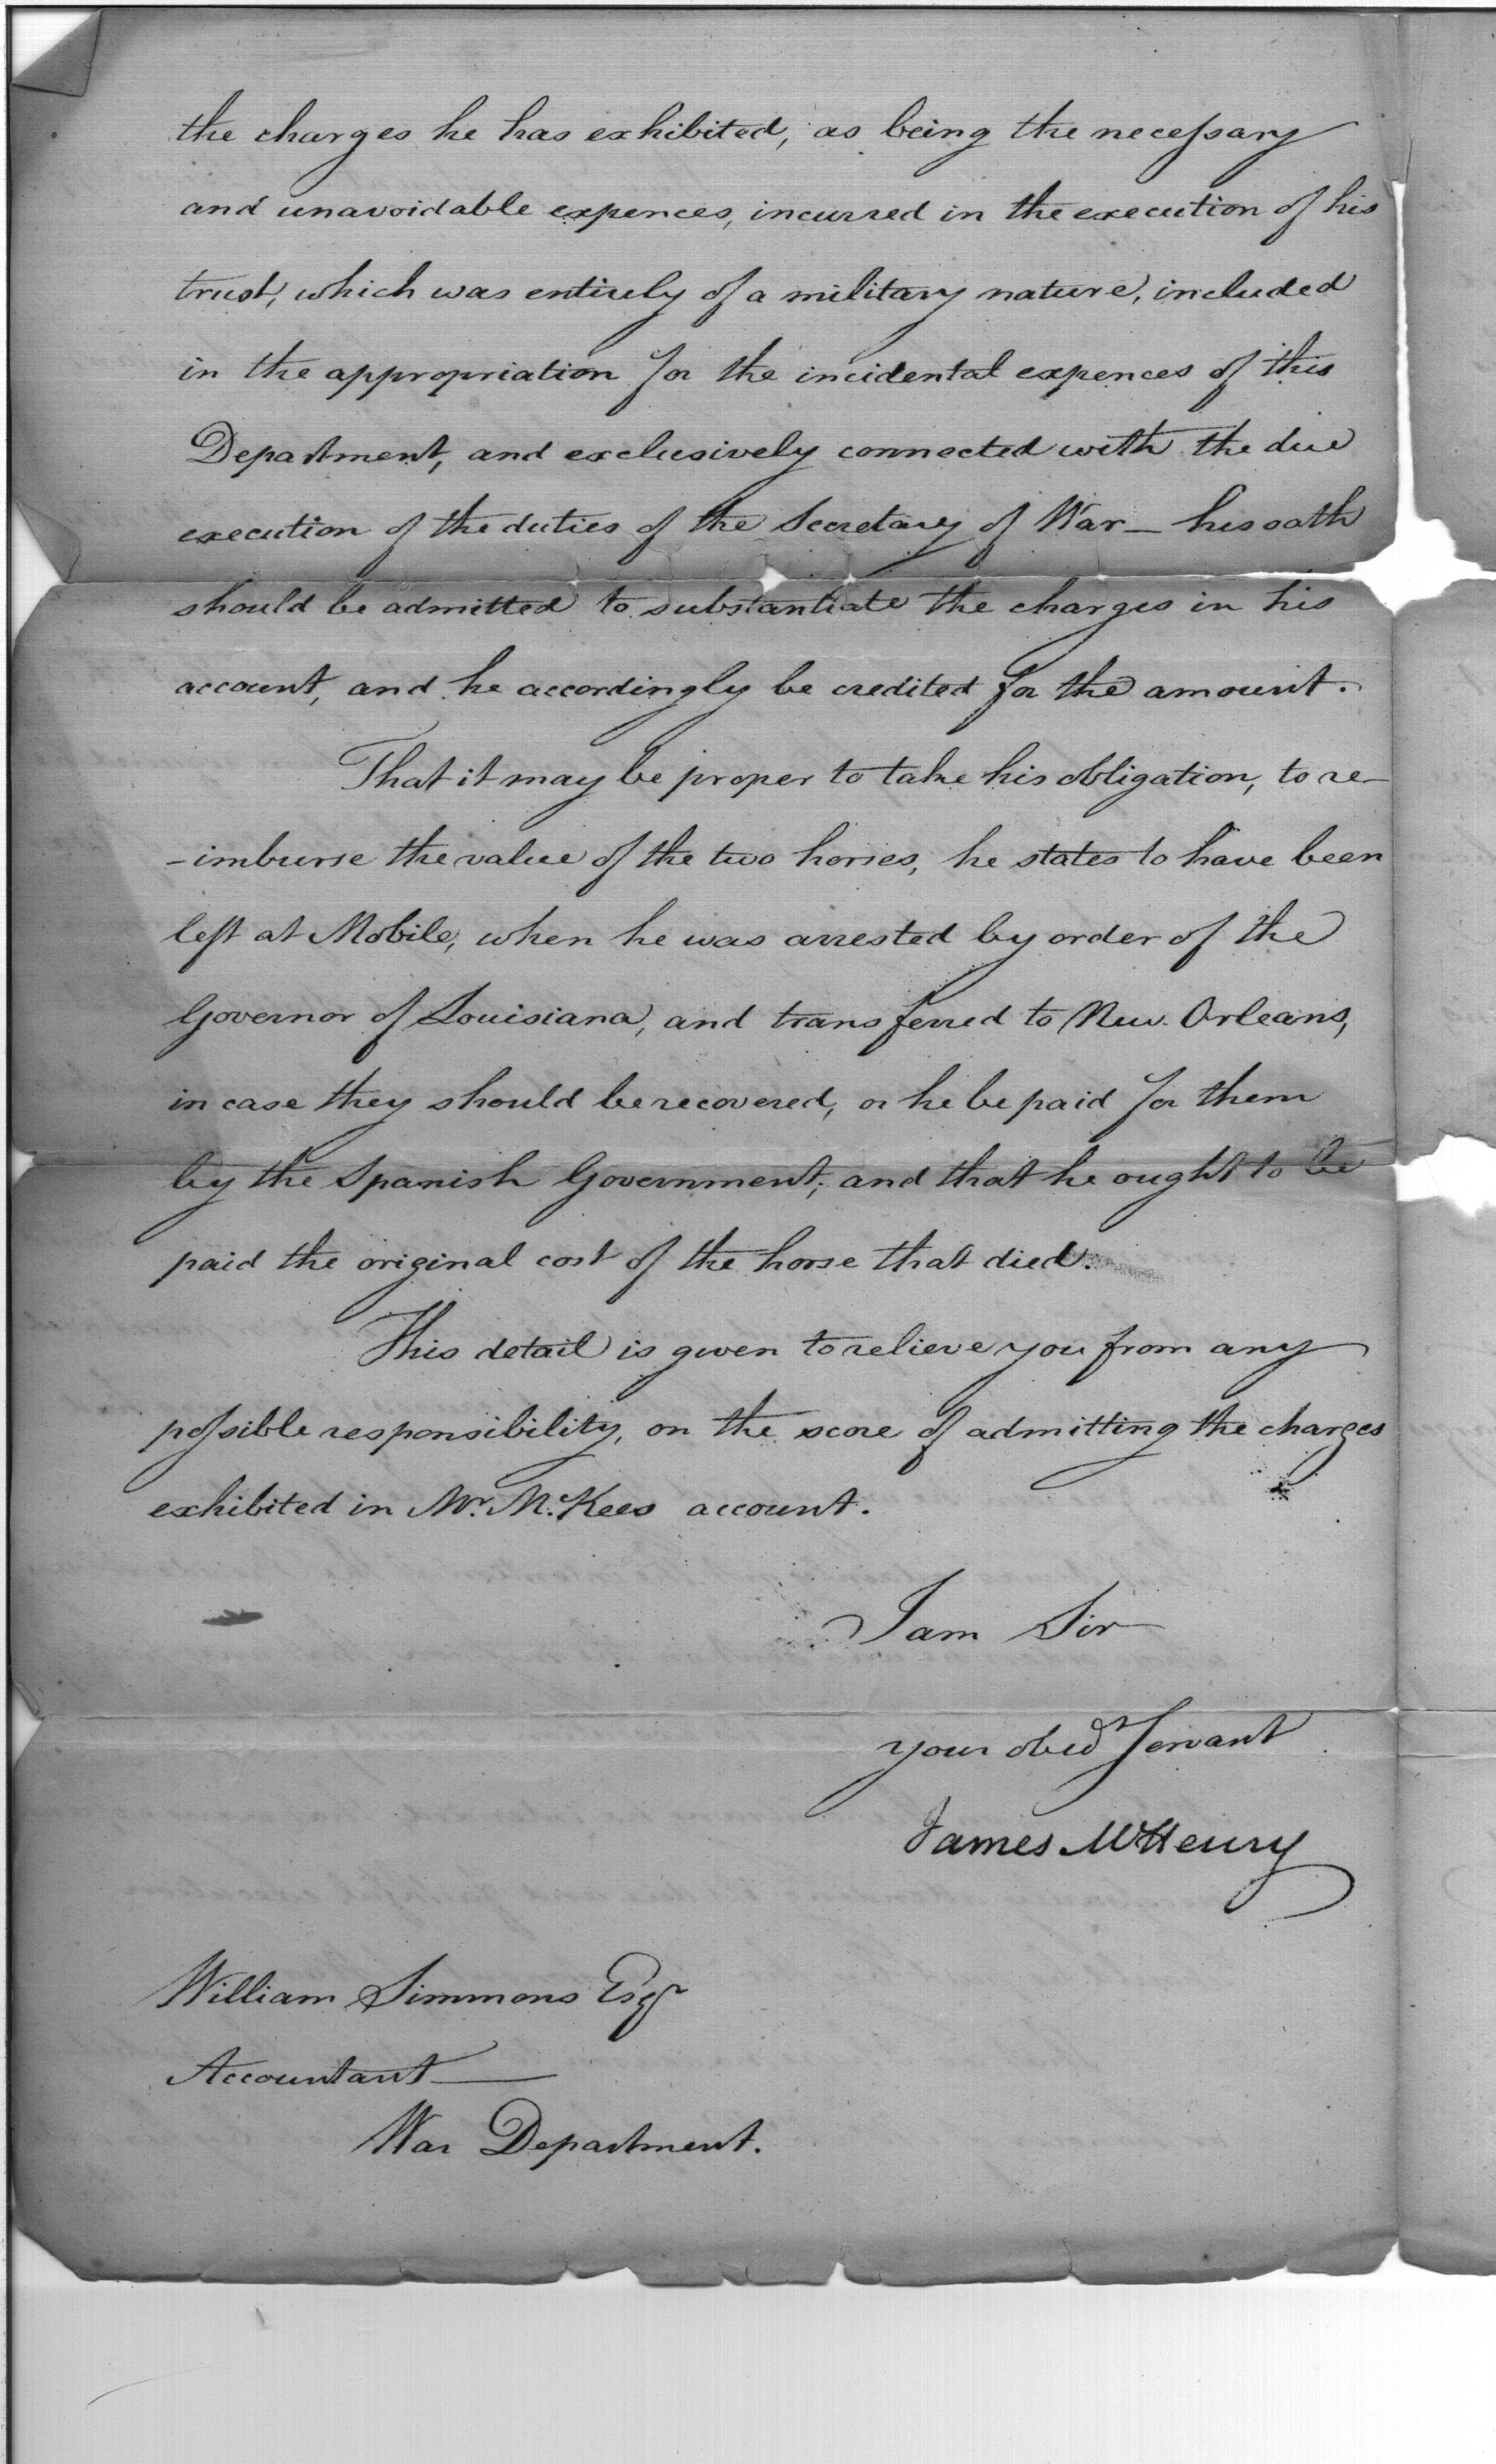 the charges he has exhibited, as being the necessary
and unavoidable expences, incurred in the execution of his
trust, which was entirely of a military nature, included
in the appropriation for the incidental expences of this
Department, and exclusively connected with the due
execution of the duties of the Secretary of War — his oath
should be admitted to substantiate the charges in his
account, and he accordingly be credited for the amount.
That it may be proper to take his obligation, to re-
-imburse the value of the two horses, he states to have been
left at Mobile, when he was arrested by order of the
Governor of Louisiana, and transferred to New Orleans,
in case they should be recovered, or he be paid for them
by the Spanish Government; and that he ought to be
paid the original cost of the horse that died.
This detail is given to relieve you from any
possible responsibility, on the score of admitting the charges
exhibited in Mr. McKees account.
I am Sir
your obedt Servant
James McHenry
William Simmons Esqr
Accountant —
War Department.